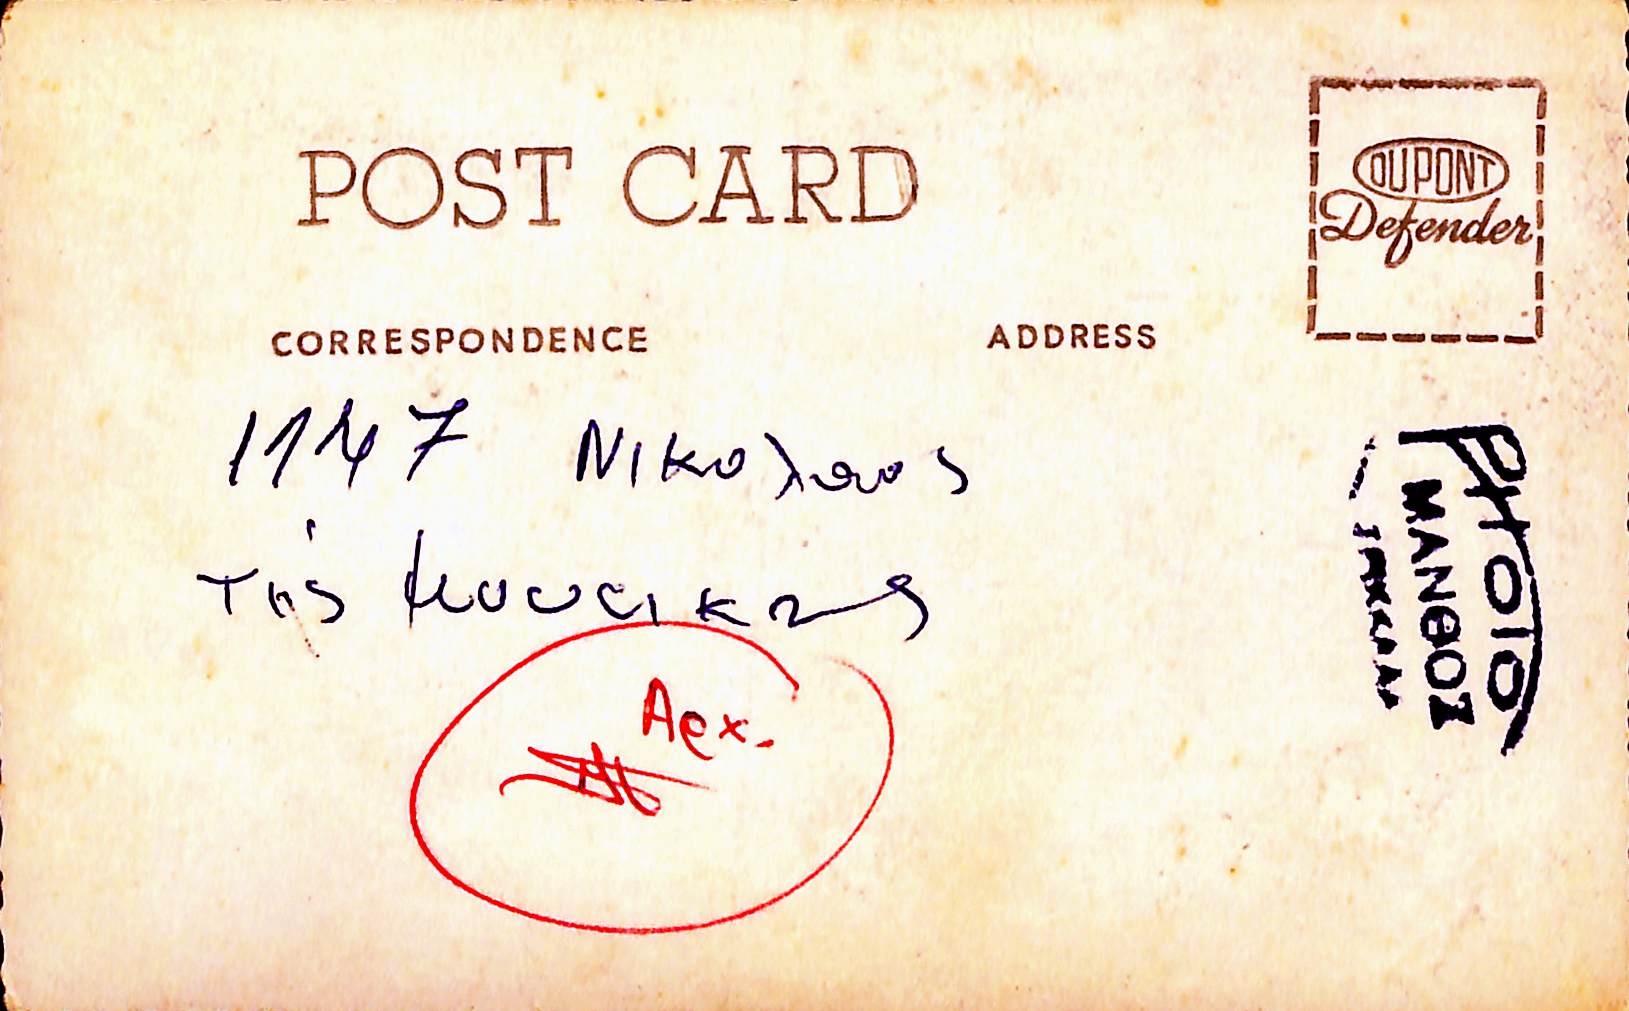 POST CARD
DUPONT
Defender
CORRESPONDENCE
ADDRESS
1147 Νικολαος
της μουσικης
Αρχ.
PHOTO
ΜΑΝΘΟΣ